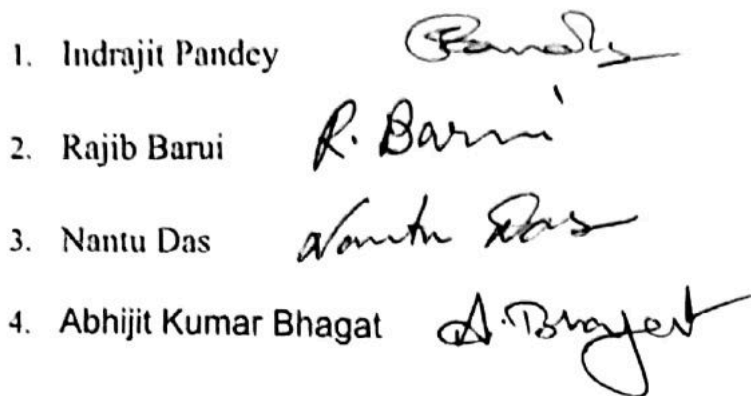 1. Indrajit Pandey
2. Rajib Barui R. Barui
3. Nantu Das Nantu Das
4. Abhijit Kumar Bhagat A. Bhagat